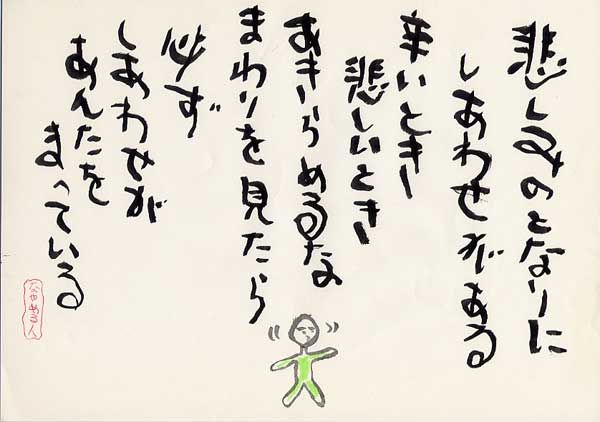 悲しみのとなりに
しあわせがある
辛いとき
悲しいとき
あきらめるな
まわりを見たら
必ず
しあわせが
あんたを
まっている
なやめる人